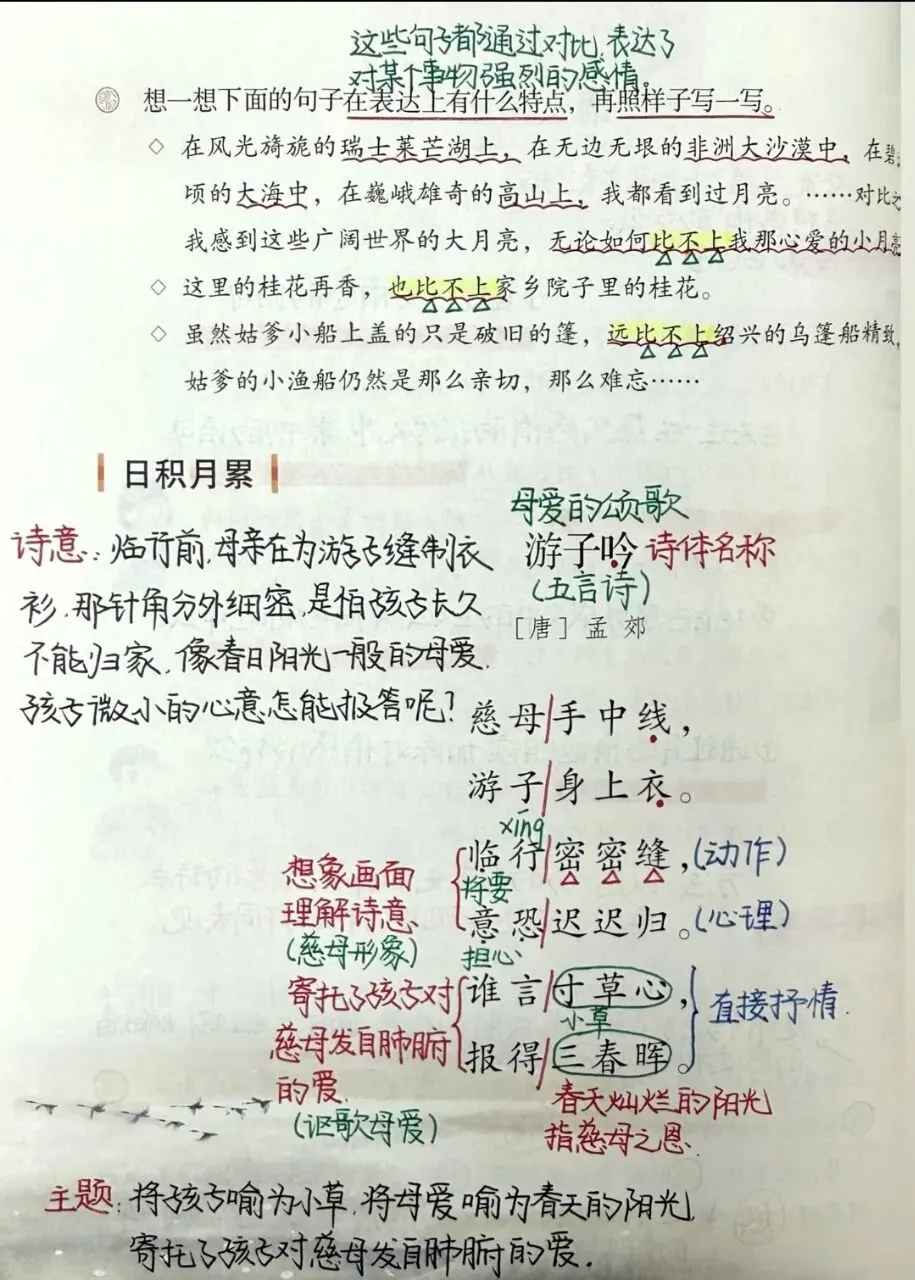 这些句子都通过对比,表达了
对某个事物强烈的感情。
想一想下面的句子在表达上有什么特点，再照样子写一写。
◇ 在风光旖旎的瑞士莱芒湖上，在无边无垠的非洲大沙漠中，在碧
顷的大海中，在巍峨雄奇的高山上，我都看到过月亮。……对比之
我感到这些广阔世界的大月亮，无论如何比不上我那心爱的小月亮
◇ 这里的桂花再香，也比不上家乡院子里的桂花。
◇ 虽然姑爹小船上盖的只是破旧的篷，远比不上绍兴的乌篷船精致，
姑爹的小渔船仍然是那么亲切，那么难忘……
日积月累
母爱的颂歌
游子吟 诗体名称
(五言诗)
[唐] 孟 郊
诗意: 临行前,母亲在为游子缝制衣
衫.那针角分外细密,是怕孩子长久
不能归家.像春日阳光一般的母爱.
孩子微小的心意怎能报答呢?
慈母/手中线，
游子/身上衣。
xíng
临行/密密缝，(动作)
将要
意恐/迟迟归。(心理)
担心
想象画面
理解诗意
(慈母形象)
谁言/寸草心，
小草
报得/三春晖。
直接抒情.
寄托了孩子对
慈母发自肺腑
的爱.
(讴歌母爱)
春天灿烂的阳光
指慈母之恩.
主题: 将孩子喻为小草,将母爱喻为春天的阳光,
寄托了孩子对慈母发自肺腑的爱.